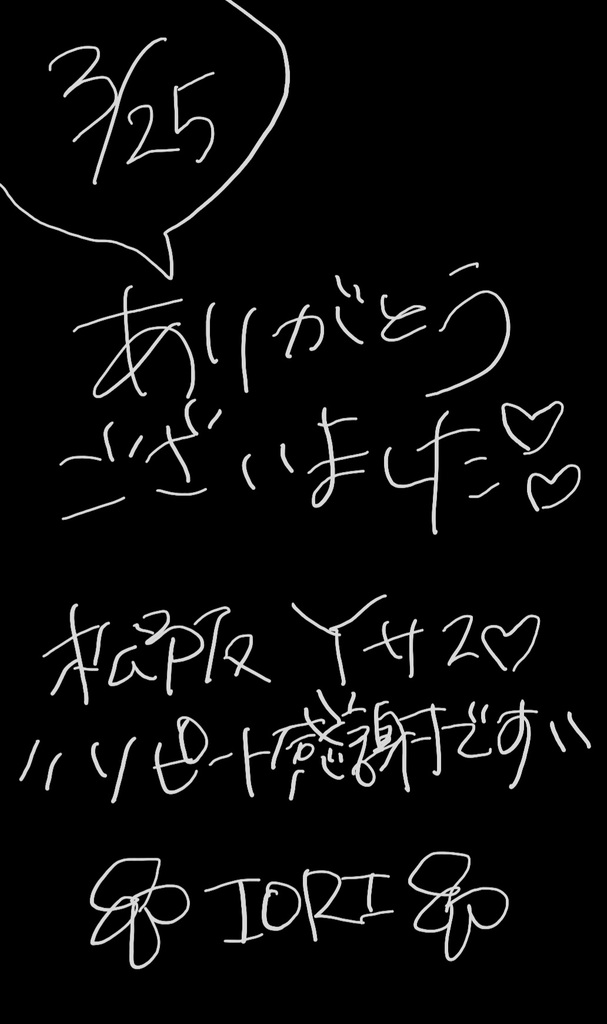 3/25
ありがとう
ございました♡♡
松阪 Y サマ♡
"リピート感謝です"
IORI